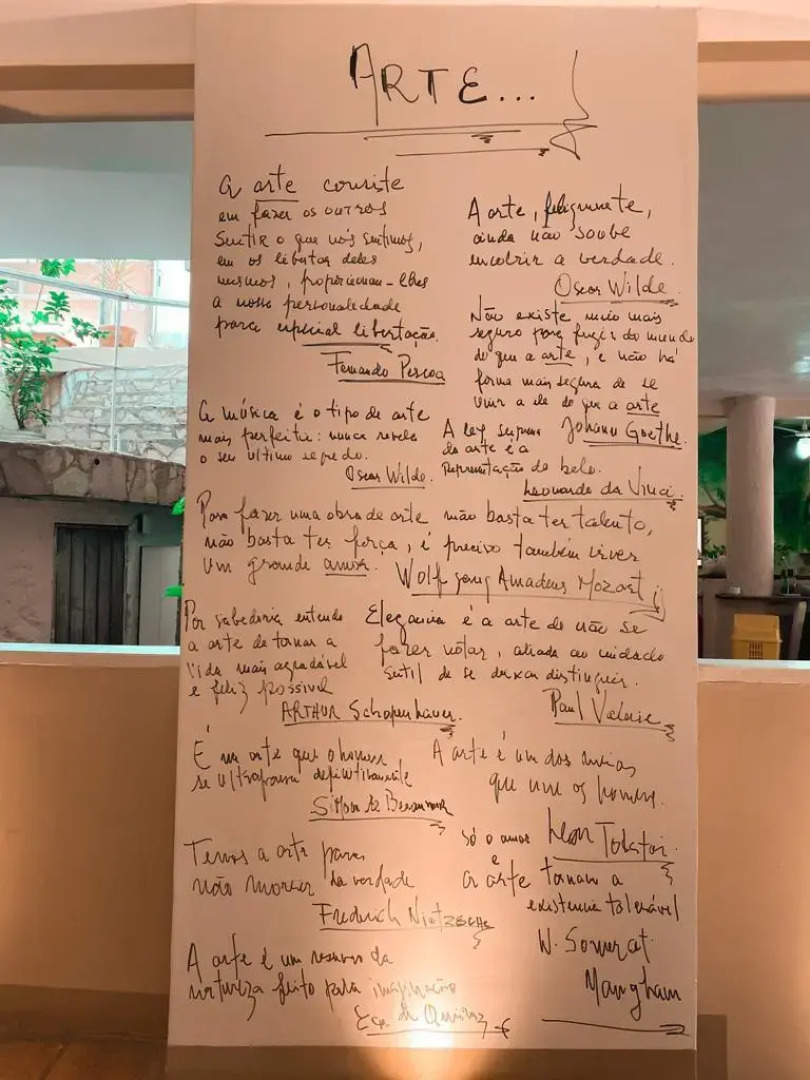 ARTE...
a arte consiste
em fazer os outros
sentir o que nós sentimos,
em os libertar deles
mesmos, proporcionan-lhes
a nossa personalidade
para especial libertação.
Fernando Pessoa
A arte, felizmente,
ainda não soube
encobrir a verdade.
Oscar Wilde
Não existe meio mais
seguro para fugir do mundo
do que a arte, e não há
forma mais segura de se
unir a ele do que a arte
Johann Goethe.
A música é o tipo de arte
mais perfeita: nunca revela
o seu último segredo.
Oscar Wilde.
A ley suprema
da arte é a
Representação do belo.
Leonardo da Vinci.
Para fazer uma obra de arte não basta ter talento,
não basta ter força, é preciso também viver
um grande amor.
Wolfgang Amadeus Mozart
Por sabedoria entendo
a arte de tornar a
vida mais agradável
e feliz possivel
ARTHUR Schopenhauer.
Elegancia é a arte de não se
fazer notar, aliada ao cuidado
sutil de se deixar distinguir.
Paul Valerie
É na arte que o homem
se ultrapassa definitivamente
Simone de Beauvoir
A arte é um dos meios
que une os homens.
Leon Tolstoi.
Temos a arte para
não morrer da verdade
Frederich Nietzsche
só o amor
e
a arte tornam a
existencia tolerável
W. Somerat
Maugham
A arte é um resumo da
natureza feito pela imaginação
Eça de Queiroz